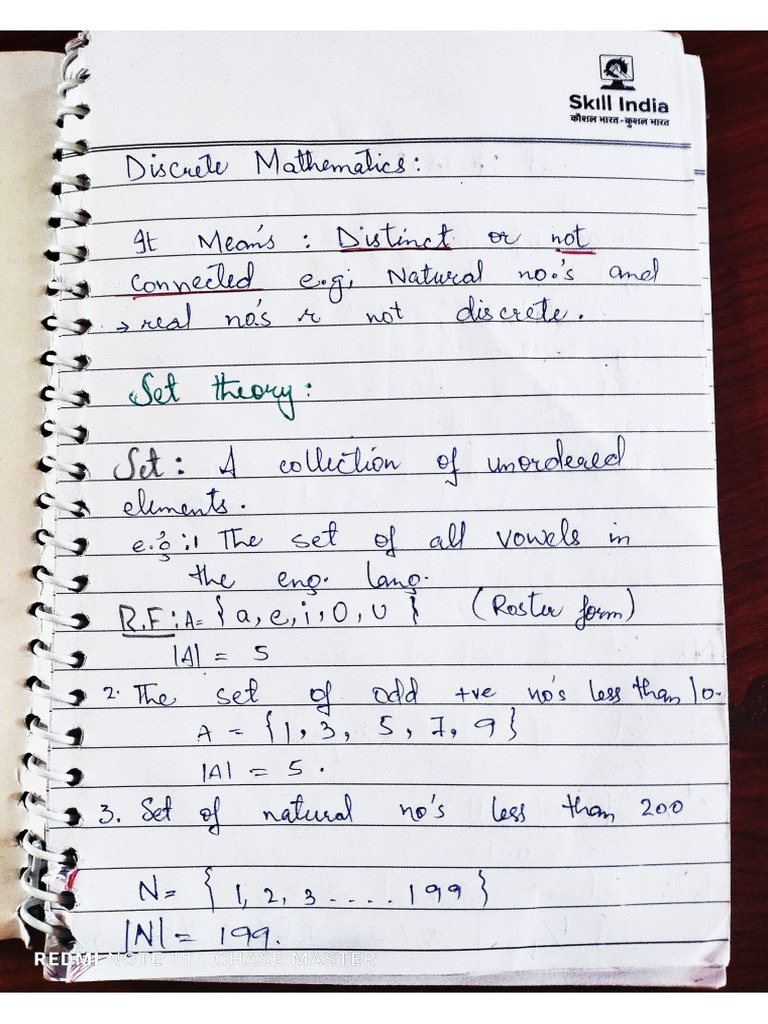 Skill India
कौशल भारत - कुशल भारत
Discrete Mathematics:
It Means : Distinct or not
connected e.g; Natural no.'s and
→ real no.'s r not discrete.
Set theory:
Set : A collection of unordered
elements.
e.g :1 The set of all vowels in
the eng. lang.
R.F : A = { a, e, i, O, U } (Roster form)
|A| = 5
2. The set of odd +ve no's less than 10.
A = {1, 3, 5, 7, 9}
|A| = 5.
3. Set of natural no's less than 200
N = { 1, 2, 3 ..... 199 }
|N| = 199.
REDMI NOTE 11 | CHASE MASTER